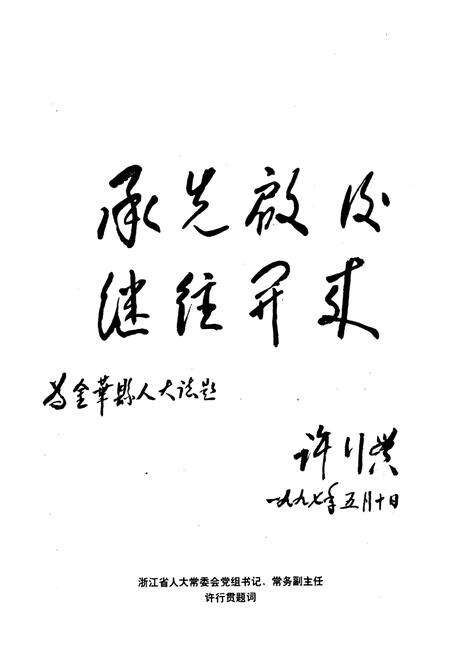 承先啟后
继往开来
为金華縣人大誌题
许行贯
一九九七年五月十日
浙江省人大常委会党组书记、常务副主任
许行贯题词